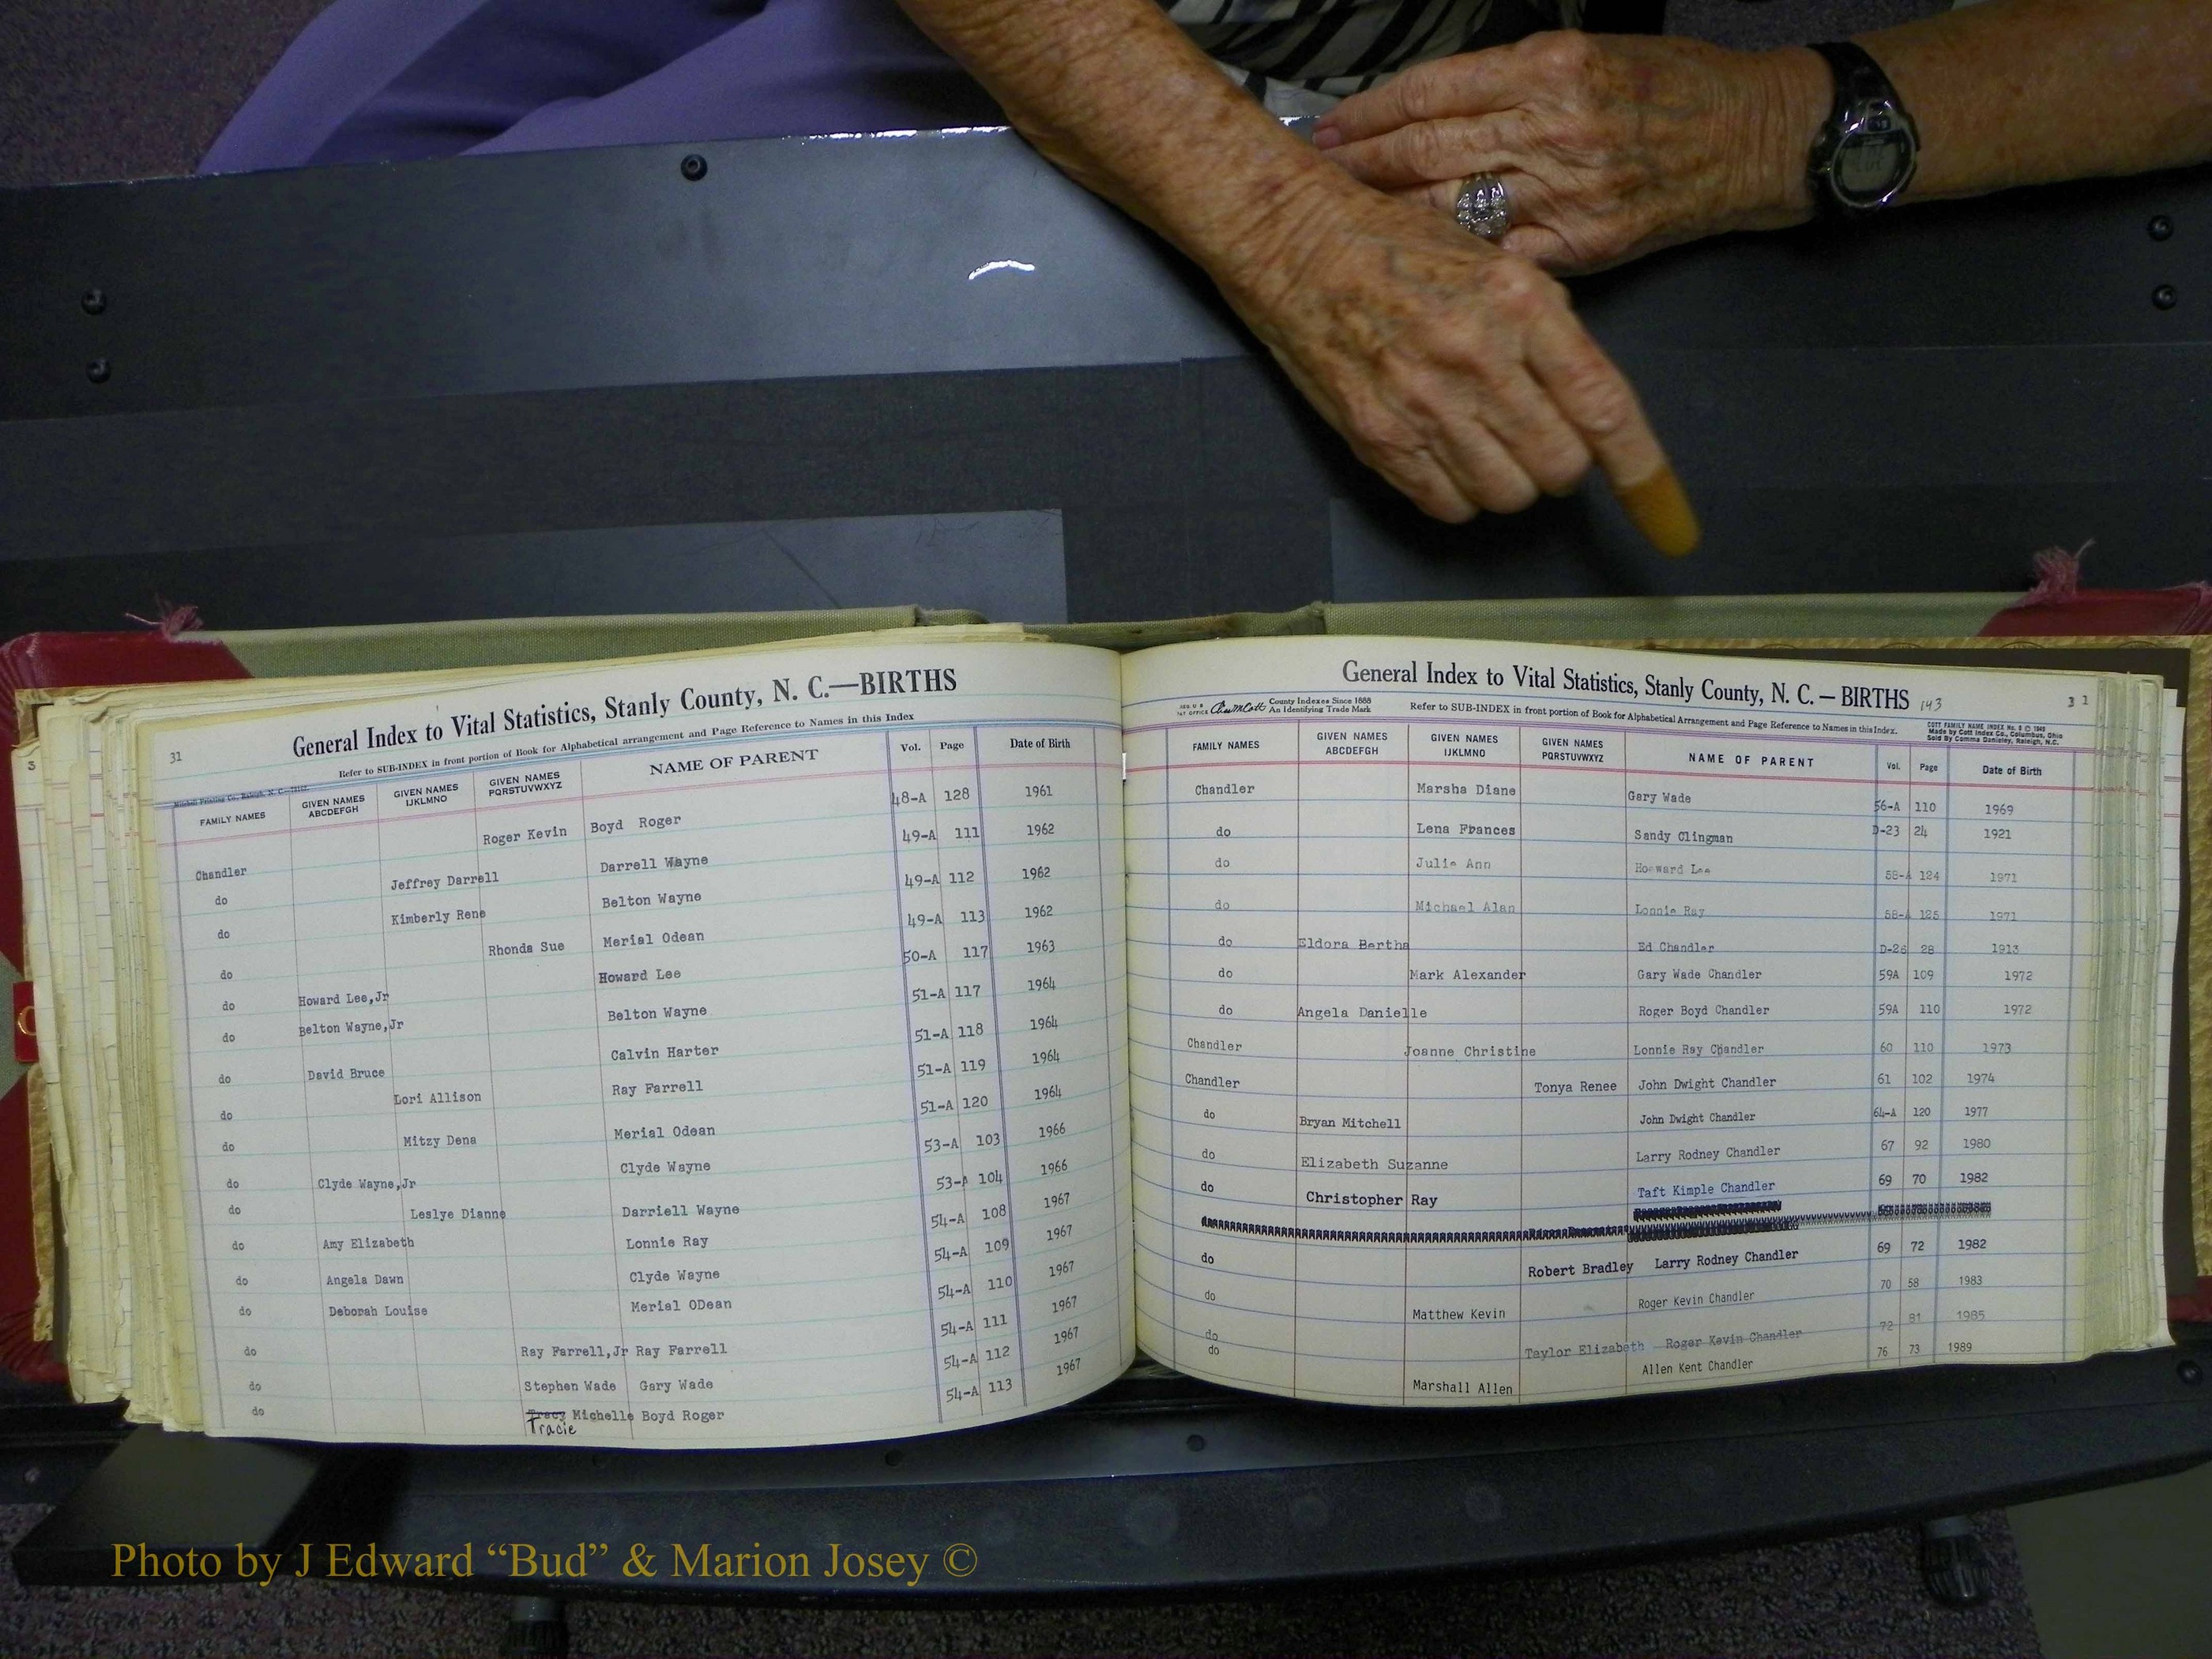 General Index to Vital Statistics, Stanly County, N. C.—BIRTHS
31 Refer to SUB-INDEX in front portion of Book for Alphabetical arrangement and Page Reference to Names in this Index
Mitchell Printing Co., Raleigh, N. C.
FAMILY NAMES GIVEN NAMES ABCDEFGH GIVEN NAMES IJKLMNO GIVEN NAMES PQRSTUVWXYZ NAME OF PARENT Vol. Page Date of Birth
Chandler Roger Kevin Boyd Roger 48-A 128 1961
do Jeffrey Darrell Darrell Wayne 49-A 111 1962
do Kimberly Rene Belton Wayne 49-A 112 1962
do Rhonda Sue Merial Odean 49-A 113 1962
do Howard Lee,Jr Howard Lee 50-A 117 1963
do Belton Wayne,Jr Belton Wayne 51-A 117 1964
do David Bruce Calvin Harter 51-A 118 1964
do Lori Allison Ray Farrell 51-A 119 1964
do Mitzy Dena Merial Odean 51-A 120 1964
do Clyde Wayne,Jr Clyde Wayne 53-A 103 1966
do Leslye Dianne Darriell Wayne 53-A 104 1966
do Amy Elizabeth Lonnie Ray 54-A 108 1967
do Angela Dawn Clyde Wayne 54-A 109 1967
do Deborah Louise Merial ODean 54-A 110 1967
do Ray Farrell,Jr Ray Farrell 54-A 111 1967
do Stephen Wade Gary Wade 54-A 112 1967
do Tracy Michelle Boyd Roger 54-A 113 1967
Tracie
General Index to Vital Statistics, Stanly County, N. C. — BIRTHS 143 31
County Indexes Since 1888
An Identifying Trade Mark
Refer to SUB-INDEX in front portion of Book for Alphabetical Arrangement and Page Reference to Names in this Index.
COTT FAMILY NAME INDEX No. 8 © 1949
Made by Cott Index Co., Columbus, Ohio
Sold By Comma Danieley, Raleigh, N.C.
FAMILY NAMES GIVEN NAMES ABCDEFGH GIVEN NAMES IJKLMNO GIVEN NAMES PQRSTUVWXYZ NAME OF PARENT Vol. Page Date of Birth
Chandler Marsha Diane Gary Wade 56-A 110 1969
do Lena Frances Sandy Clingman D-23 24 1921
do Julie Ann Howard Lee 58-A 124 1971
do Michael Alan Lonnie Ray 58-A 125 1971
do Eldora Bertha Ed Chandler D-26 28 1913
do Mark Alexander Gary Wade Chandler 59A 109 1972
do Angela Danielle Roger Boyd Chandler 59A 110 1972
Chandler Joanne Christine Lonnie Ray Chandler 60 110 1973
Chandler Tonya Renee John Dwight Chandler 61 102 1974
do Bryan Mitchell John Dwight Chandler 64-A 120 1977
do Elizabeth Suzanne Larry Rodney Chandler 67 92 1980
do Christopher Ray Taft Kimple Chandler 69 70 1982
do Robert Bradley Larry Rodney Chandler 69 72 1982
do Matthew Kevin Roger Kevin Chandler 70 58 1983
do Taylor Elizabeth Roger Kevin Chandler 72 81 1985
do Marshall Allen Allen Kent Chandler 76 73 1989
Photo by J Edward “Bud” & Marion Josey ©